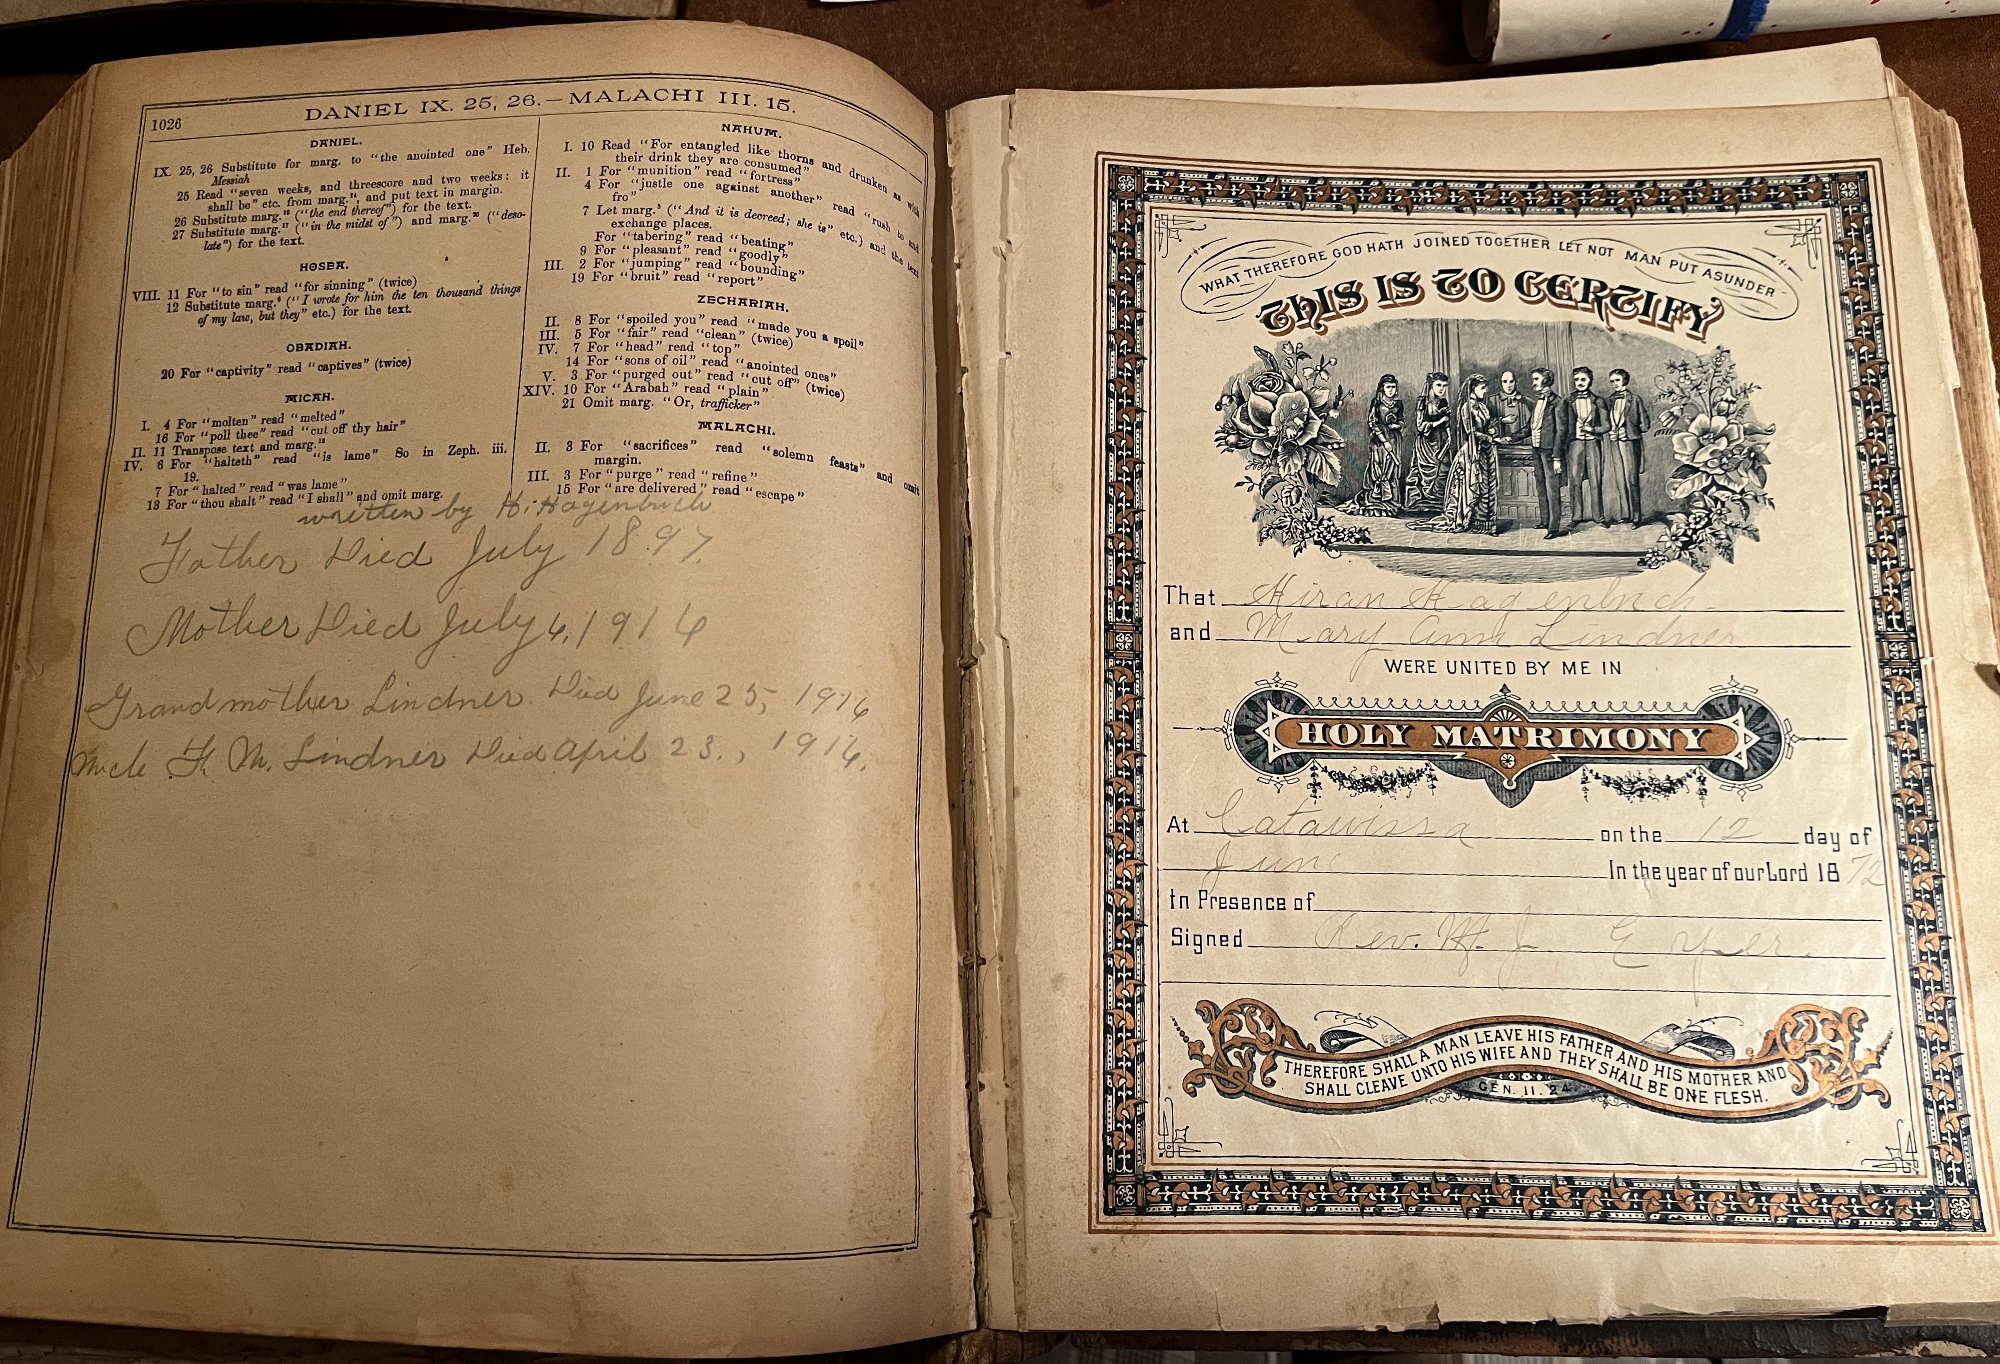 1026
DANIEL IX. 25, 26.—MALACHI III. 15.
DANIEL.
IX. 25, 26 Substitute for marg. to "the anointed one" Heb.
Messiah
25 Read "seven weeks, and threescore and two weeks: it
shall be" etc. from marg.", and put text in margin.
26 Substitute marg." ("the end thereof") for the text.
27 Substitute marg." ("in the midst of") and marg." ("deso-
late") for the text.
HOSEA.
VIII. 11 For "to sin" read "for sinning" (twice)
12 Substitute marg. ("I wrote for him the ten thousand things
of my law, but they" etc.) for the text.
OBADIAH.
20 For "captivity" read "captives" (twice)
MICAH.
I. 4 For "molten" read "melted"
16 For "poll thee" read "cut off thy hair"
II. 11 Transpose text and marg."
IV. 6 For "halteth" read "is lame" So in Zeph. iii.
19.
7 For "halted" read "was lame"
13 For "thou shalt" read "I shall" and omit marg.
NAHUM.
I. 10 Read "For entangled like thorns and drunken as with
their drink they are consumed"
II. 1 For "munition" read "fortress"
4 For "justle one against another" read "rush to and
fro"
7 Let marg. ("And it is decreed; she is" etc.) and the text
exchange places.
For "tabering" read "beating"
9 For "pleasant" read "goodly"
III. 2 For "jumping" read "bounding"
19 For "bruit" read "report"
ZECHARIAH.
II. 8 For "spoiled you" read "made you a spoil"
III. 5 For "fair" read "clean" (twice)
IV. 7 For "head" read "top"
14 For "sons of oil" read "anointed ones"
V. 3 For "purged out" read "cut off" (twice)
XIV. 10 For "Arabah" read "plain"
21 Omit marg. "Or, trafficker"
MALACHI.
II. 3 For "sacrifices" read "solemn feasts" and omit
margin.
III. 3 For "purge" read "refine"
15 For "are delivered" read "escape"
written by H. Hagenbuch
Father Died July 1897.
Mother Died July 6, 1916
Grandmother Lindner Died June 25, 1916
Uncle F. M. Lindner Died April 23., 1916.
WHAT THEREFORE GOD HATH JOINED TOGETHER LET NOT MAN PUT ASUNDER
THIS IS TO CERTIFY
That Hiran Hagenbuch
and Mary Ann Lindner
WERE UNITED BY ME IN
HOLY MATRIMONY
At Catawissa on the 12 day of
June In the year of our Lord 1872
In Presence of
Signed Rev. W. J. Eyer
THEREFORE SHALL A MAN LEAVE HIS FATHER AND HIS MOTHER AND
SHALL CLEAVE UNTO HIS WIFE AND THEY SHALL BE ONE FLESH.
GEN. 11. 24